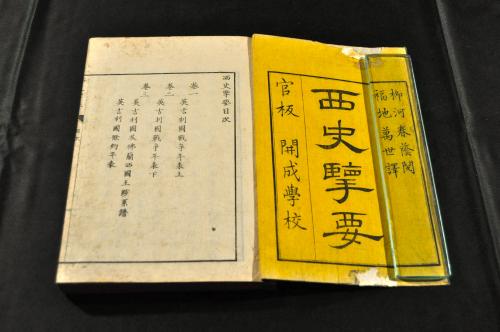 柳河春蔭閲
福地萬世譯
西史擥要
官板 開成學校
西史擥要目次
卷一
英吉利國戰爭年表上
卷二
英吉利國戰爭年表下
卷三
英吉利國及佛蘭西國王系譜
英吉利國條約年表